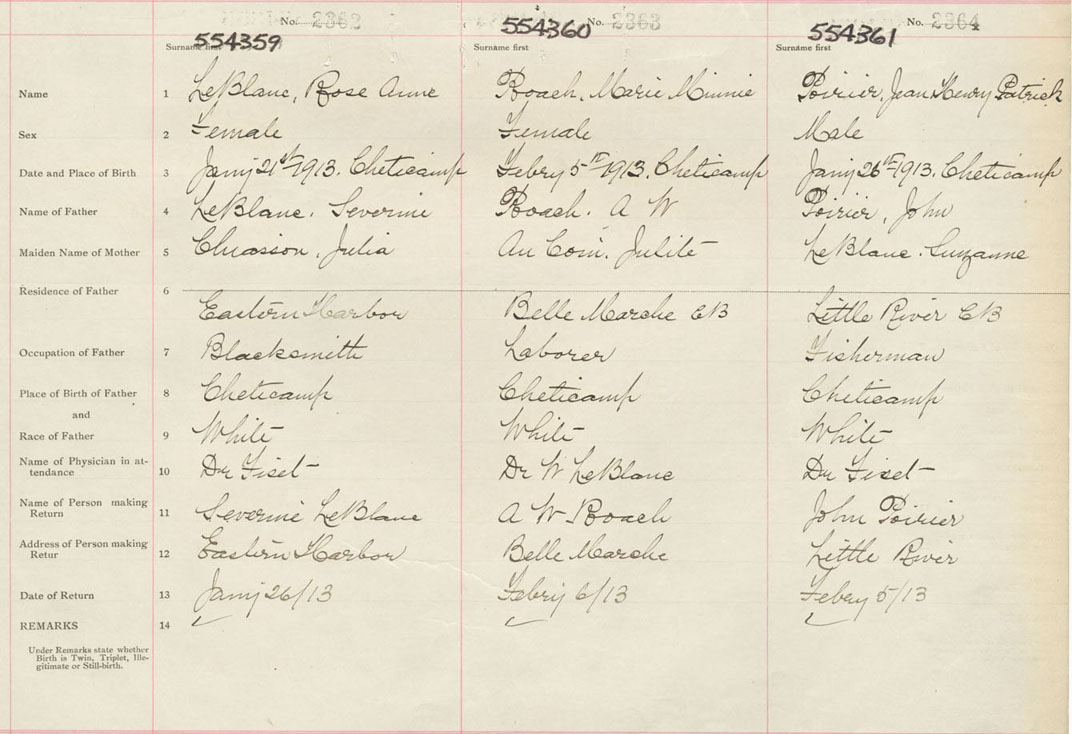 No. 2362 No. 2363 No. 2364
554359 554360 554361
Surname first Surname first Surname first
Name 1 LeBlanc, Rose Anne Roach, Marie Minnie Poirier, Jean Henry Patrick
Sex 2 Female Female Male
Date and Place of Birth 3 Jany 21st 1913. Cheticamp Febry 5th 1913. Cheticamp Jany 26th 1913. Cheticamp
Name of Father 4 LeBlanc. Severine Roach. A W Poirier, John
Maiden Name of Mother 5 Chiasson, Julia Au Coin. Julite LeBlanc. Suzanne
Residence of Father 6
Eastern Harbor Belle Marche CB Little River CB
Occupation of Father 7 Blacksmith Laborer Fisherman
Place of Birth of Father 8 Cheticamp Cheticamp Cheticamp
and
Race of Father 9 White White White
Name of Physician in at-
tendance 10 Dr Fiset Dr W LeBlanc Dr Fiset
Name of Person making
Return 11 Severine LeBlanc A W Roach John Poirier
Address of Person making
Retur 12 Eastern Harbor Belle Marche Little River
Date of Return 13 Jany 26/13 Febry 6/13 Febry 5/13
REMARKS 14
Under Remarks state whether
Birth is Twin, Triplet, Ille-
gitimate or Still-birth.